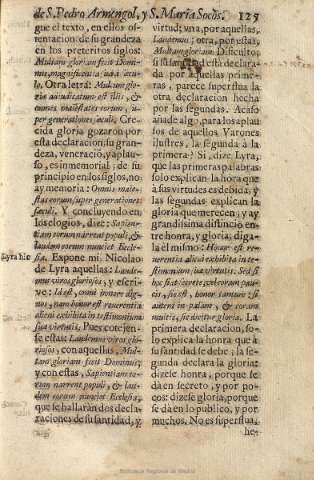 de S. Pedro Armengol, y S. Maria Socòs. 125
que el texto, en ellos os-
tentacion de su grandeza
en los preteritos siglos:
Multam gloriam fecit Domi-
nus, magnificentia sua à sæcu-
lo. Otra letra: Multam glo-
riam adiudicatum est illis, &
omnes maiestates eorum, su-
per generationes sæculi. Cre-
cida gloria gozaron por
esta declaracion, su gran-
deza, veneració, y aplau-
so, es in memorial; de su
principio en los siglos, no
ay memoria: Omnis maie-
stas eorum, super generationes
sæculi. Y concluyendo en
los elogios, dize: Sapien-
tiam eorum narrent populi, &
laudem eorum nunciet Eccle-
sia. Expone mi Nicolao
de Lyra aquellas: Laude-
mus viros gloriosos, y escri-
ve: Idest, omni honore dig-
nos, nam honor est reverentia
alicui exhibita in testimonium
sua virtutis. Pues cotejen-
se estas: Laudemus viros glo-
riosos, con aquellas, Mul-
tam gloriam fecit Dominus;
y con estas, Sapientiam eo-
rum narrent populi, & lau-
dem eorum nunciet Ecclesia,
que se hallarán dos decla-
raciones de su santidad, y
Lyra hic
virtud; vna, por aquellas,
Laudemus; otra, por estas,
Multam gloriam. Dificulto:
si su santidad està declara-
da por aquellas prime-
ras, parece superflua la
otra declaracion hecha
por las segundas. Acaso
añade algo, para los aplau-
sos de aquellos Varones
ilustres, la segunda à la
primera? Si, dize Lyra,
que las primeras palabras
solo explican la hora que
à sus virtudes es debida, y
las segundas explican la
gloria que merecen; y ay
grandissima distinció en-
tre honra, y gloria; diga-
la el mismo: Honor est re-
uerentia alicui exhibita in te-
stimonium sua virtutis. Sed si
hoc fiat secretè, & coram pau-
cis, sic est, honor tantum: si
autem in palam, & coram
multis, sic dicitur gloria. La
primera declaracion, so-
lo explica la honra que à
su santidad se debe; la se-
gunda declara la gloria:
dizese honra, porque se
dà en secreto, y por po-
cos: dizese gloria, porque
se dà en lo publico, y por
muchos. No es superflua,
he-
Biblioteca Regional de Madrid